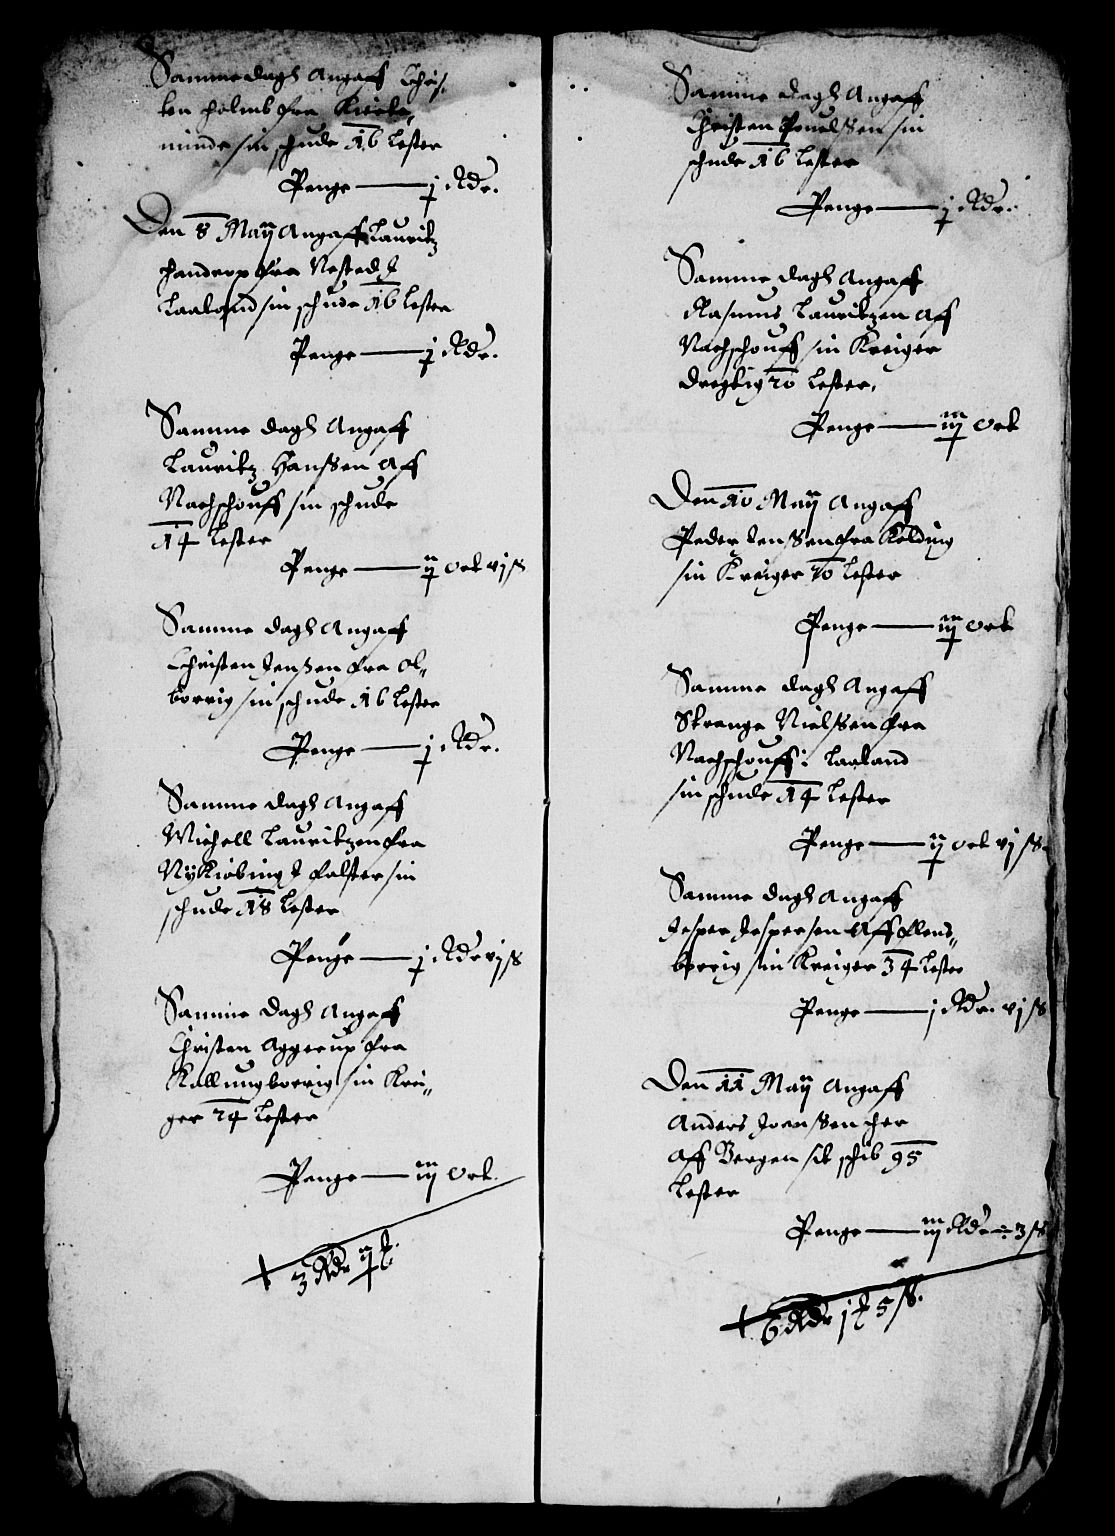 Samme dagh Angaff Chris-
ten holmb fra Kierte-
minde sin schude 16 Lester
Penge — j Rdr.
Den 8 Maÿ Angaff Lauritz
fra Nested I
Laaland sin schude 16 Lester
Penge — j Rdr.
Samme dagh Angaff
Lauritz Hanssen Aff
Nachschouff sin schude
14 Lester
Penge — ij Ort vj ß
Samme dagh Angaff
Christen Jenssen fra Ol-
borrig sin schude 16 Lester
Penge — j Rdr.
Samme dagh Angaff
Michell Lauritzen fra
Nÿkiøbing I falster sin
schude 18 Lester
Penge — j Rdr vj ß
Samme dagh Angaff
Christen Aggerup fra
Kallungborrig sin Krei-
ger 24 Lester
Penge — iij Ort.
3 Rdr
Samme dagh Angaff
Christen Pouelssen sin
schude 16 Lester
Penge — j Rdr.
Samme dagh Angaff
Rasmus Lauritzen Aff
Nachschouff sin Kreiger
dregtig 20 Lester.
Penge — iij Ort
Den 10 Maÿ Angaff
Peder Jenssen fra Kolding
sin Kreiger 20 Lester
Penge — iij Ort
Samme dagh Angaff
Strange Nielssen fra
Nachschouff i Laaland
sin schude 14 Lester
Penge — ij Ort vj ß.
Samme dagh Angaff
Jesper Jespersen Aff flens-
borrig sin Kreiger 34 Lester
Penge — j Rdr. vj ß
Den 11 Maÿ Angaff
Anders
Aff Bergen sit schib 95
Lester
Penge — iij Rdr ÷ 3 ß
6 Rdr j 5 ß.